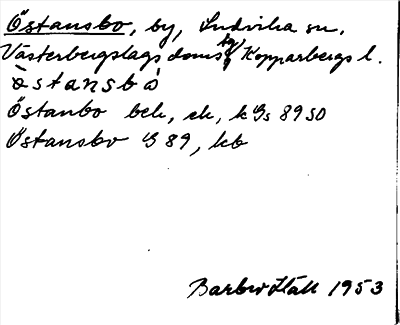 Östansbo, by, Ludvika sn.
Västerbergslags doms tg Kopparbergs l.
östansbó
Östanbo bek, ek, k Gs 8950
Östansbo G 89, kb
Barbro Häll 1953